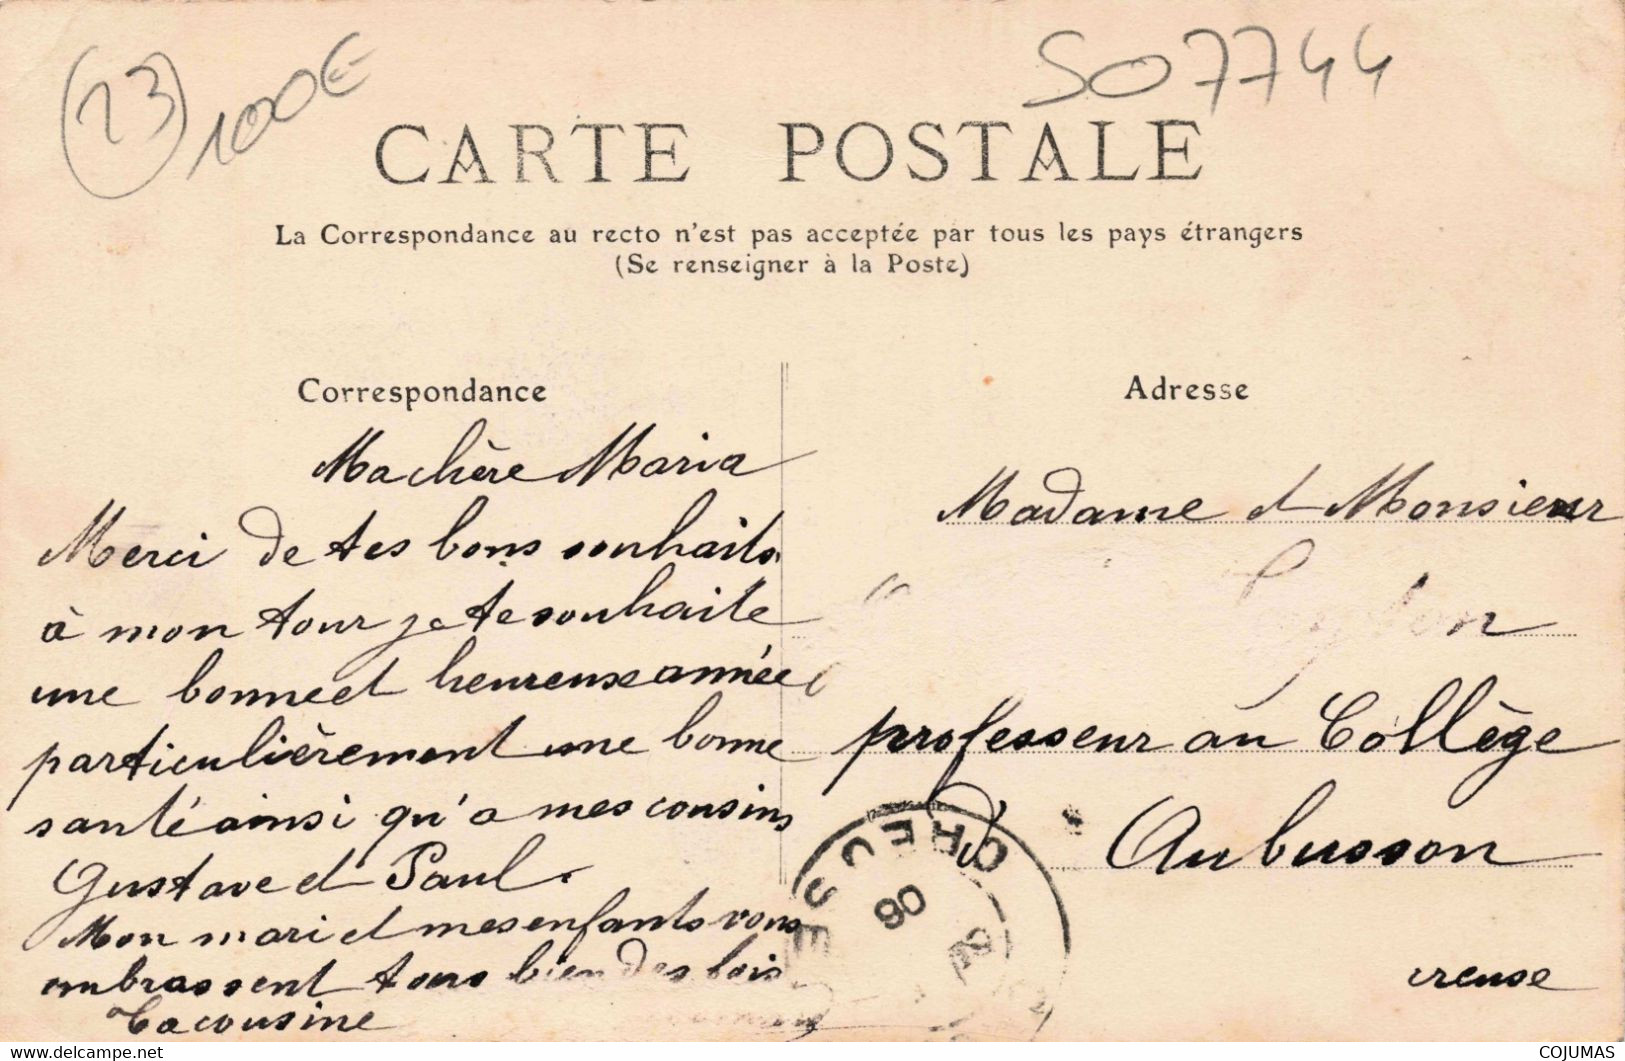 (23)
100€
SO7744
CARTE POSTALE
La Correspondance au recto n'est pas acceptée par tous les pays étrangers
(Se renseigner à la Poste)
Correspondance
Ma chère Maria
Merci de tes bons souhaits
à mon tour je te souhaite
une bonne et heureuse année
particulièrement une bonne
santé ainsi qu'a mes cousins
Gustave et Paul.
Mon mari et mes enfants vous
embrassent tous bien des fois
Ta cousine
Adresse
Madame et Monsieur
professeur au Collège
d'Aubusson
creuse
CREUSE
06
www.delcampe.net
COJUMAS